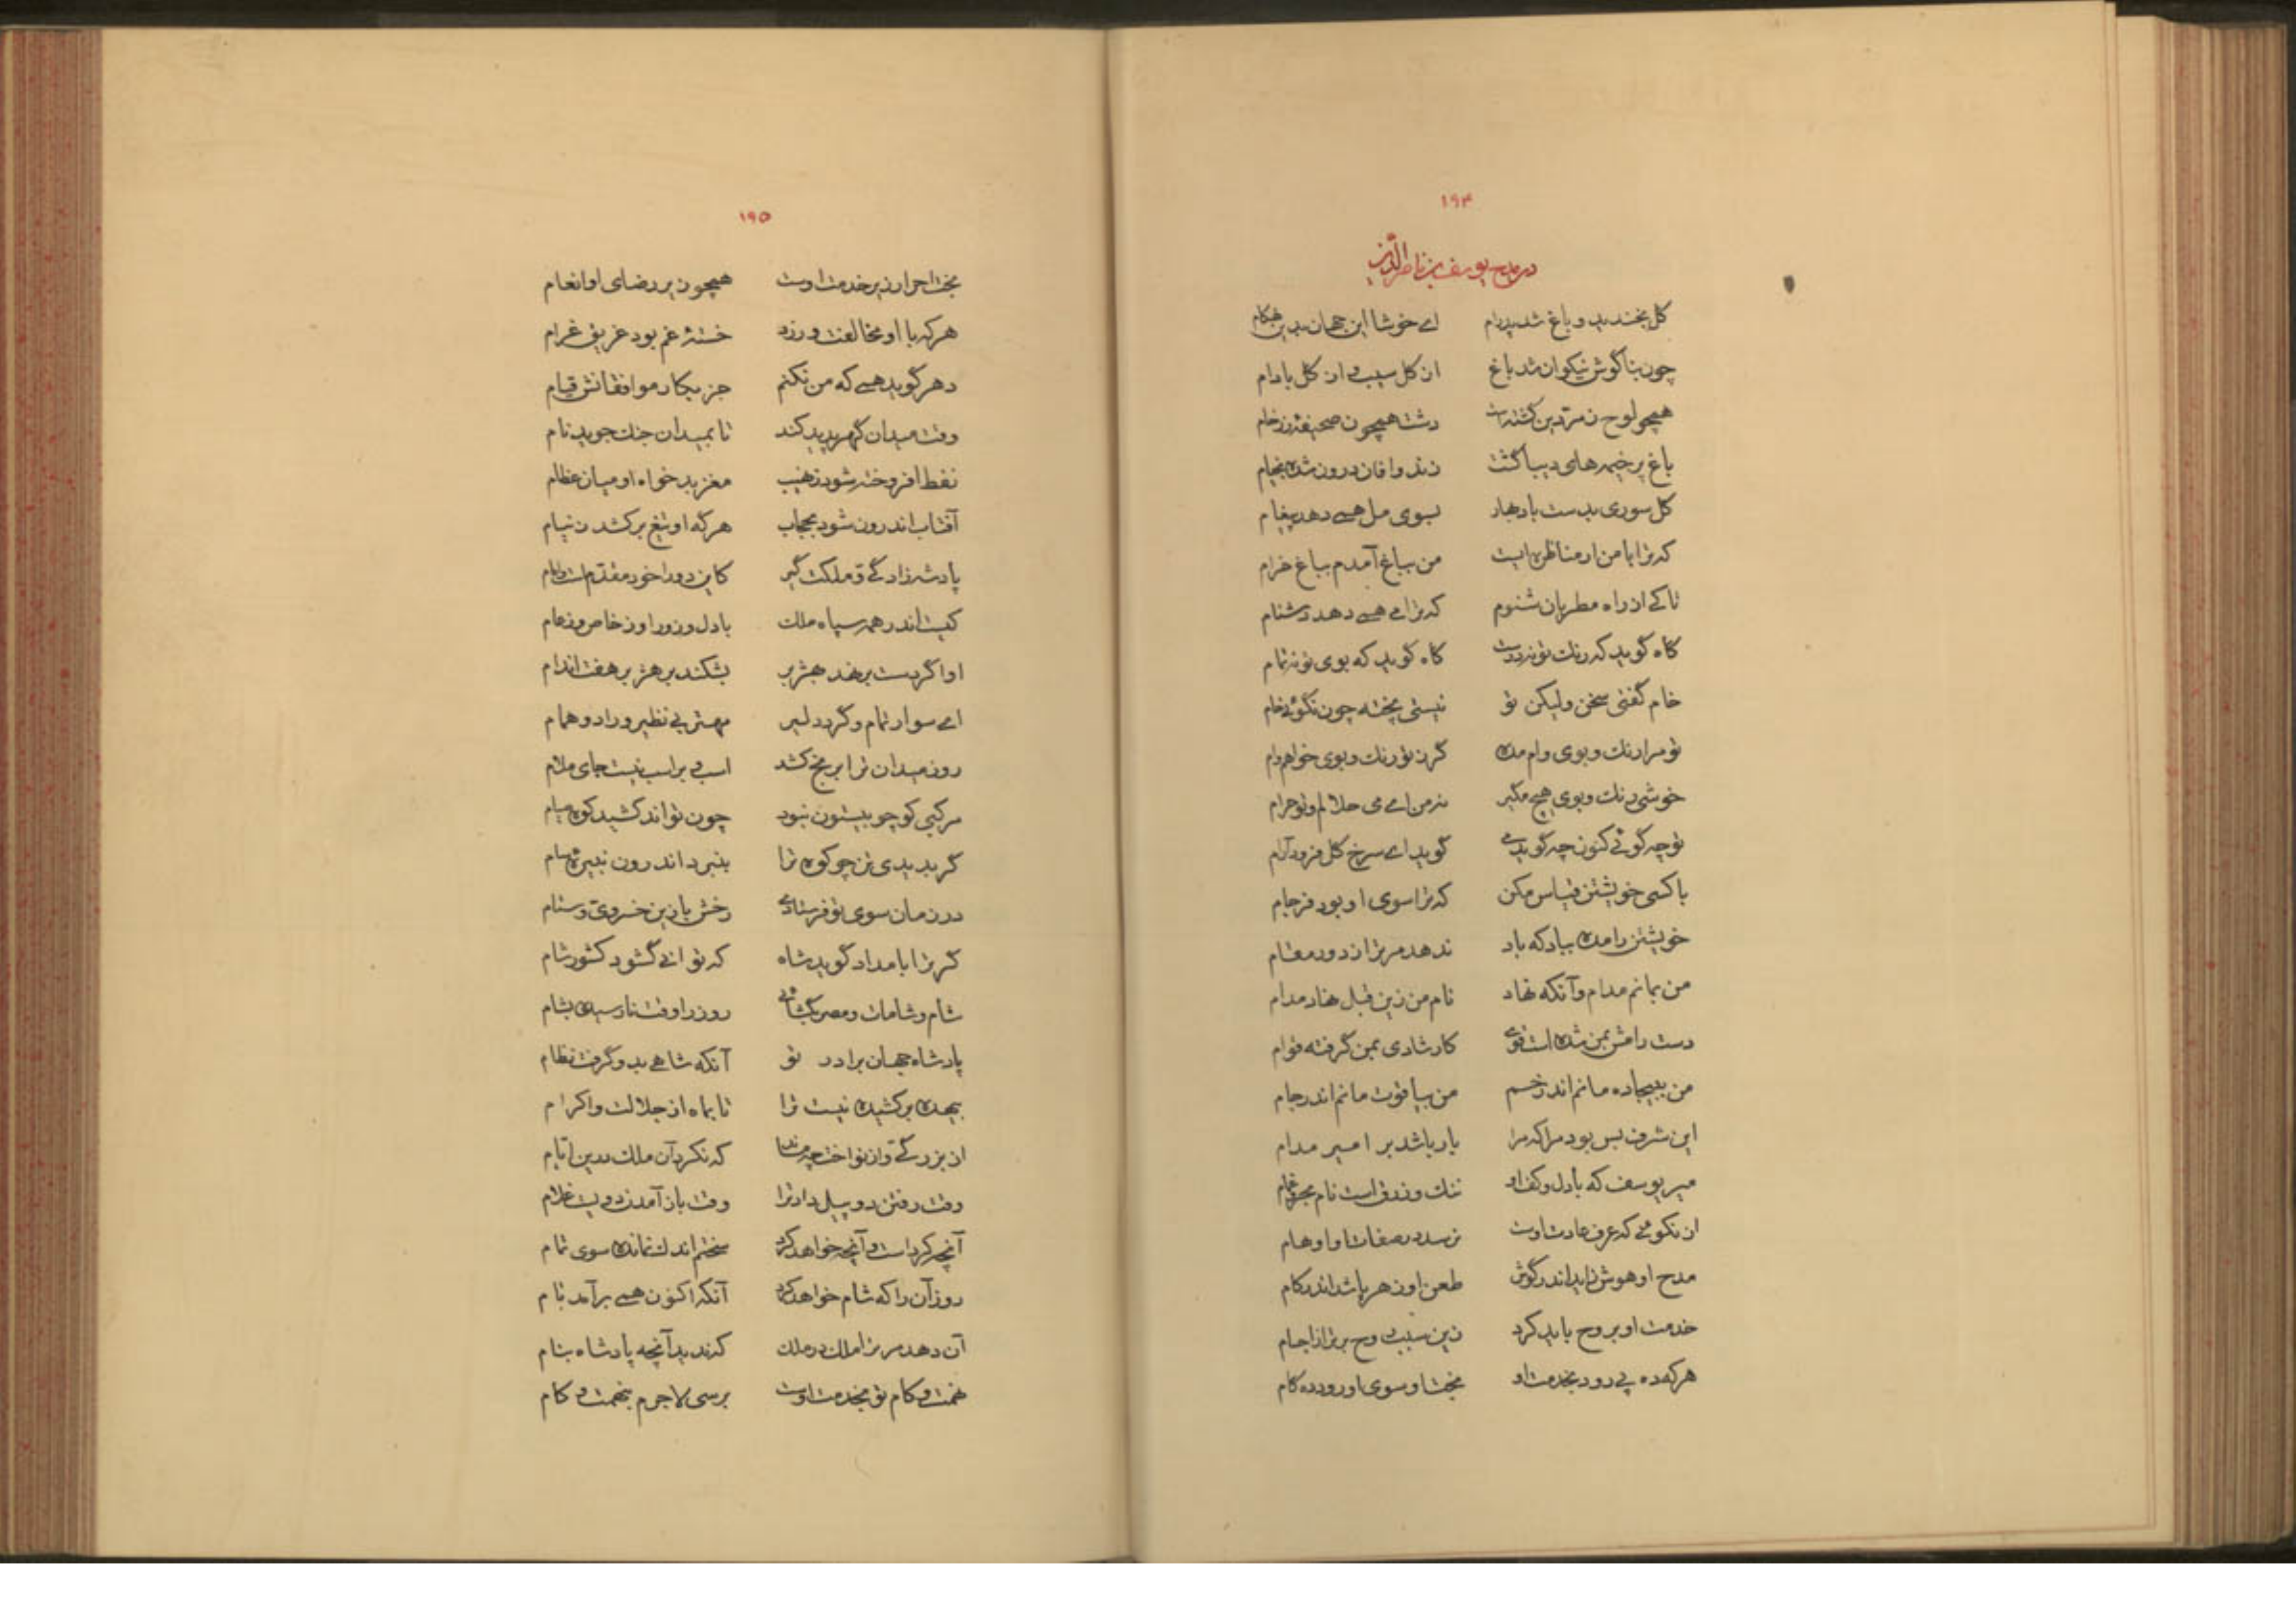 ۱۹۴
در مدح یوسف بن ناصرالدین
کل بخندید و باغ شد پدرام ای خوشا این جهان بدین هنکام
چون بناگوش نیکوان شد باغ از کل سیب و از کل بادام
همچو لوح زمردین گشته است دشت همچون صحیفه ز رخام
باغ پر خیمه‌های دیبا گشت زند وافان درون شده بخیام
کل سوری بدست باد بهار بسوی مل همی دهد پیغام
که ترا با من ار مناظره ایست من بباغ آمدم بباغ خرام
تا کی از راه مطربان شنوم که ترا می همی دهد دشنام
کاه کوید که رنک تو نه درست کاه کوید که بوی تو نه تمام
خام گفتی سخن ولیکن تو نیستی پخته چون نگوئی خام
تو مرا رنک و بوی وام مده گر ز تو رنک و بوی خواهم وام
خوشی و رنک و بوی هیچ مگیر نه من ای می حلالم و تو حرام
تو چه گوئی کنون چه گوید می گوید ای سرخ کل فرود آرام
با کسی خویشتن قیاس مکن که ترا سوی او بود فرجام
خویشتن را مده بباد که باد ندهد مر ترا ز دور مقام
من بمانم مدام و آنکه نهاد نام من زین قبل نهاد مدام
دست رامش بمن شده است قوی کار شادی بمن گرفته قوام
من ببیجاده مانم اندر خم من بیاقوت مانم اندر جام
این شرف بس بود مرا که مرا بار باشد بر امیر مدام
میر یوسف که با دل و کف او ننک و زرق است نام بحر و غمام
از نکوئی که عرف و عادت اوست نرسد در صفات او اوهام
مدح او هوش زاید اندر گوش طعن او زهر باشد اندر کام
خدمت او بروح باید کرد زین سبب روح برتر از اجسام
هر که ده پی رود بخدمت او بخت او سوی او رود ده کام
۱۹۵
بخت احرار زیر خدمت اوست همچون زیر رضای او انعام
هر که با او مخالفت ورزد خستهٔ غم بود غریق غرام
دهر گوید همی که من نکنم جز بکار موافقانش قیام
وقت میدان گهر پدید کند تا بمیدان جنک جوید نام
نفط افروخته شود ز نهیب مغز بدخواه او میان عظام
آفتاب اندرون شود بحجاب هر گه او تیغ برکشد ز نیام
پادشه زادگی و ملکت گیر کاین دو را خود مقدم است و امام
کیست اندر همه سپاه ملک با دل و زور او ز خاص و ز عام
او اگر دست بر نهد بهژبر بشکند بر هژبر هفت اندام
ای سوار تمام و گرد دلیر مهتر بی نظیر و راد و همام
روز میدان ترا برنج کشد اسب و بر اسب نیست جای ملام
مرکبی کو چو بیستون نبود چون تواند کشید کوه سیام
گر بدیدی تن چو کوه ترا بنبرد اندرون نبیرهٔ سام
در زمان سوی تو فرستادی رخش با زین خسروی و ستام
گر ترا بامداد گوید شاه که توانی گشود کشور شام
شام و شامات و مصر بگشائی روز را وقت نارسیده بشام
پادشاه جهان برادر تو آنکه شاهی بدو گرفت نظام
بیهده برکشیده نیست ترا تا بماه از جلالت و اکرام
از بزرگی و از نواخت چه ماند که نکرد آن ملک درین ایام
وقت رفتن دو پیل داد ترا وقت باز آمدن دویست غلام
آنچه کرد است و آنچه خواهد کرد سختم اندک نماید سوی تمام
روز آن را که شام خواهد کرد آنکه اکنون همی برآمد بام
آن دهد مر ترا ملک در ملک که ندید آنچه پادشاه بنام
نهمت و کام تو بخدمت اوست برسی لاجرم بنهمت و کام